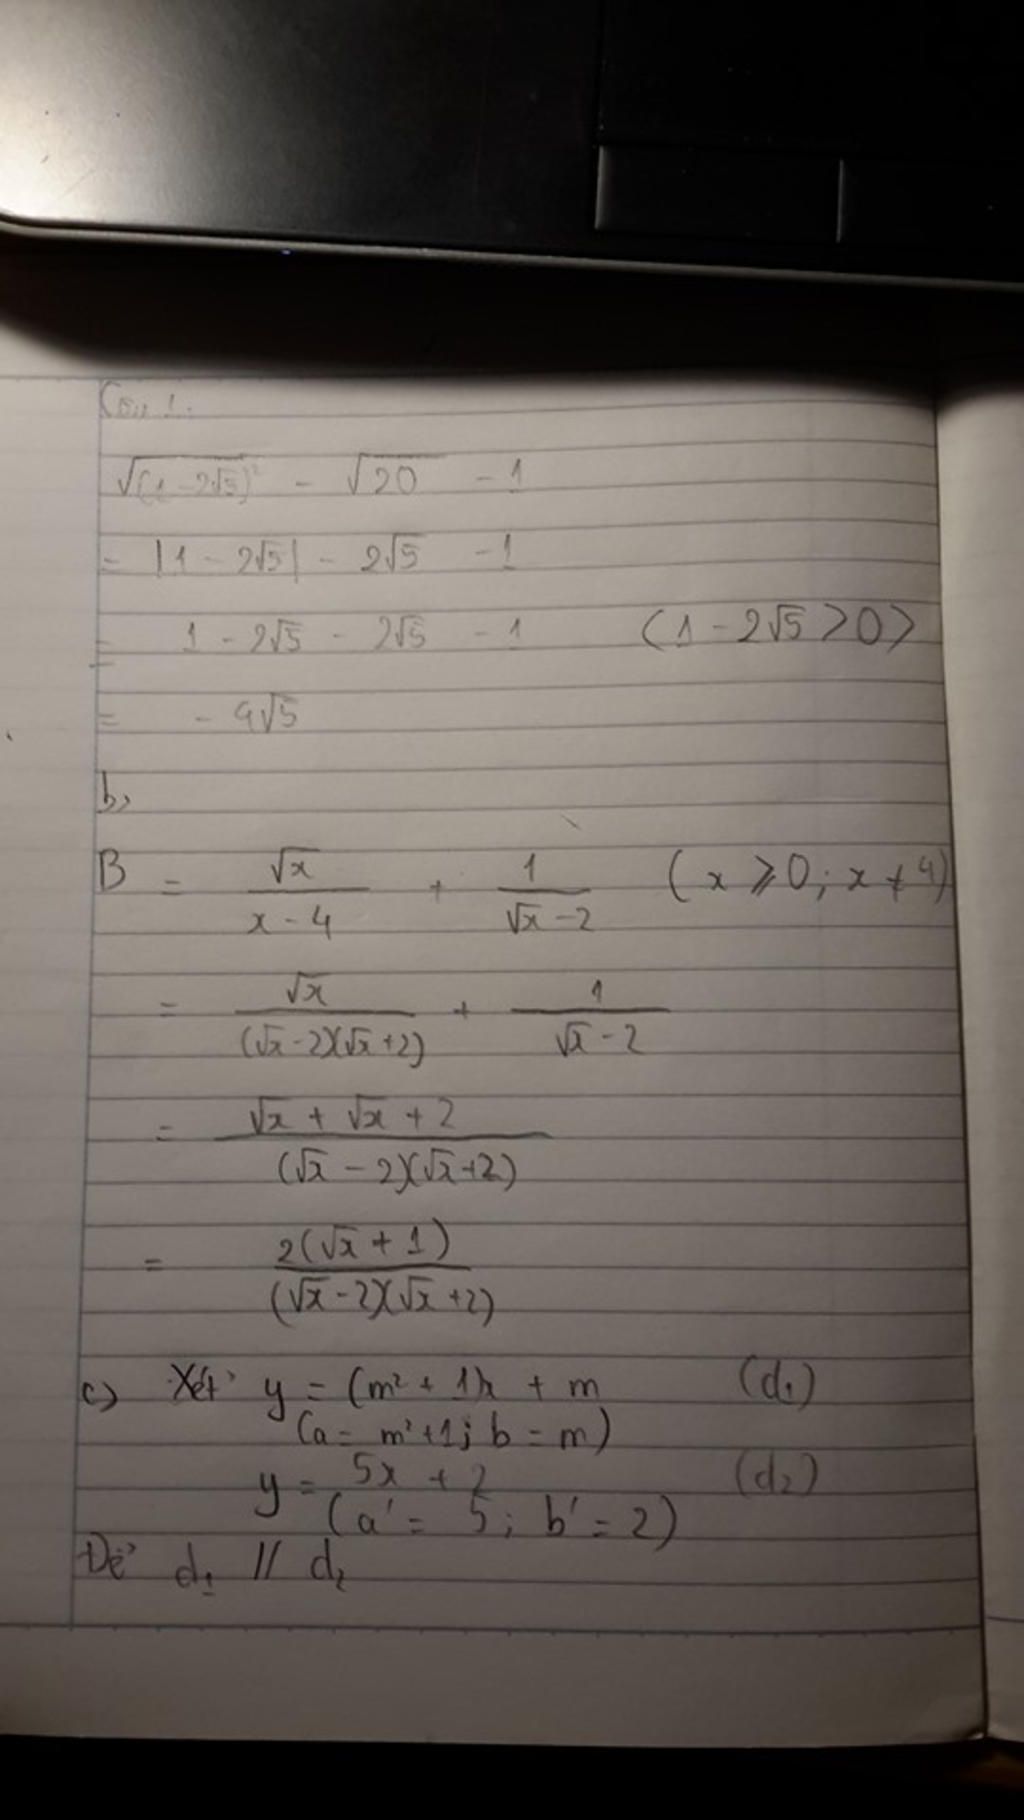 Câu 1.
√(1 - 2√5)² - √20 - 1
= |1 - 2√5| - 2√5 - 1
= 1 - 2√5 - 2√5 - 1 (1 - 2√5 > 0)
= - 4√5
b,
B = √x / (x - 4) + 1 / (√x - 2) (x ⩾ 0; x ≠ 4)
= √x / ((√x - 2)(√x + 2)) + 1 / (√x - 2)
= (√x + √x + 2) / ((√x - 2)(√x + 2))
= 2(√x + 1) / ((√x - 2)(√x + 2))
c) Xét y = (m² + 1)x + m (d₁)
(a = m² + 1; b = m)
y = 5x + 2 (d₂)
(a' = 5; b' = 2)
Để d₁ // d₂